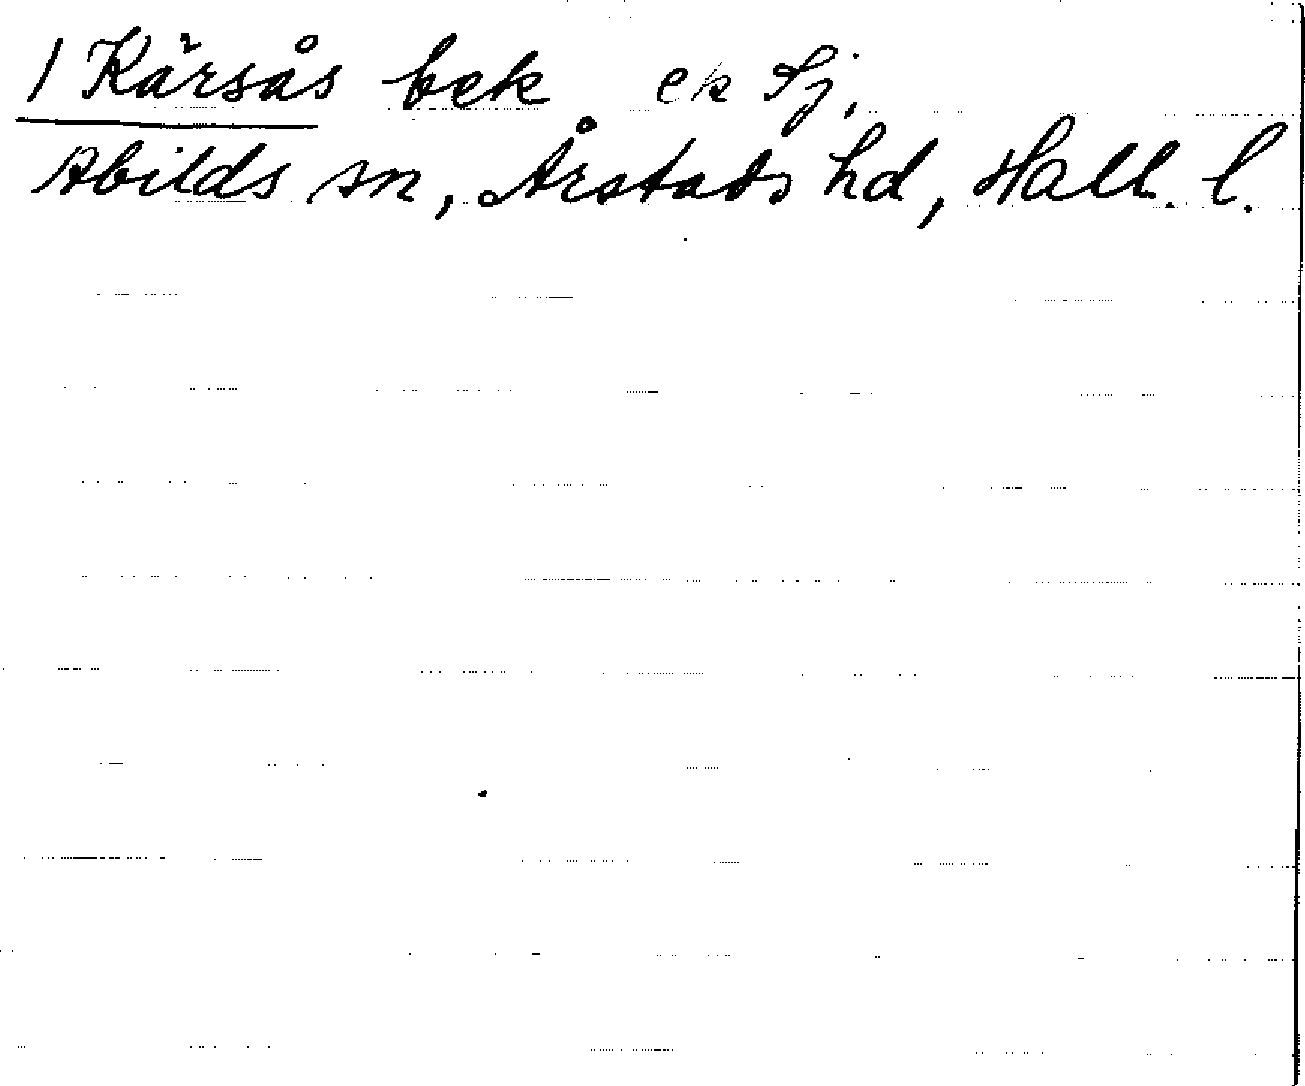 1 Kärsås bek ek Sj.
Abilds sn, Årstads hd, Hall. l.